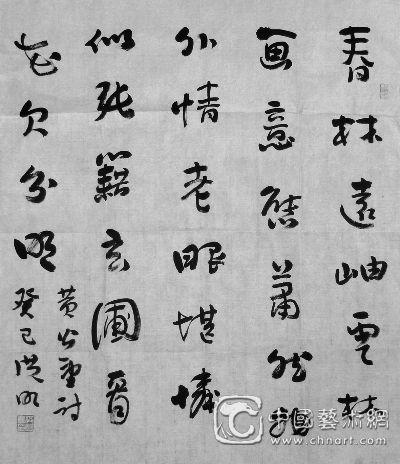 春林遠岫雲林
画意態蕭然物
外情老眼堪憐
似張籍玄圃看
花欠分明
黄公望诗
癸巳
中國藝術網
www.chnart.com